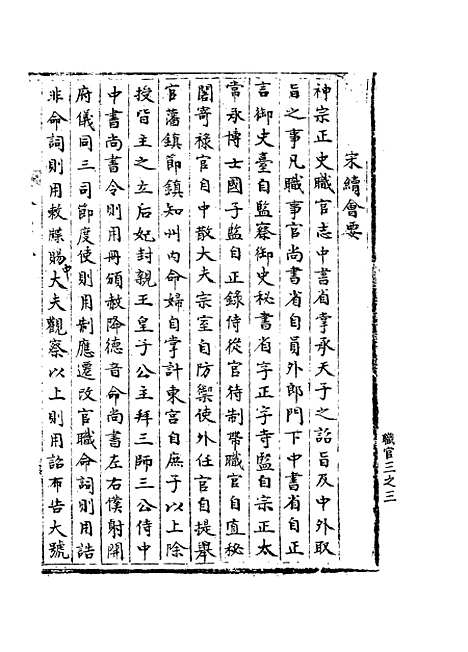 宋續會要
神宗正史職官志中書省掌承天子之詔旨及中外取
旨之事凡職事官尚書省自員外郎門下中書省自正
言御史臺自監察御史秘書省自正字寺監自宗正太
常丞博士國子監自正錄侍從官自待制帶職官自直秘
閣寄祿官自中散大夫宗室自防禦使外任官自提舉
官藩鎮節鎮知州內命婦自掌計東宮自庶子以上除
授皆主之立后妃封親王皇子公主拜三師三公侍中
中書尚書令則用冊頒赦降德音命尚書左右僕射開
府儀同三司節度使則用制應遷改官職命詞則用誥
非命詞則用敕牒賜中大夫觀察以上則用詔布告大號
職官三之三